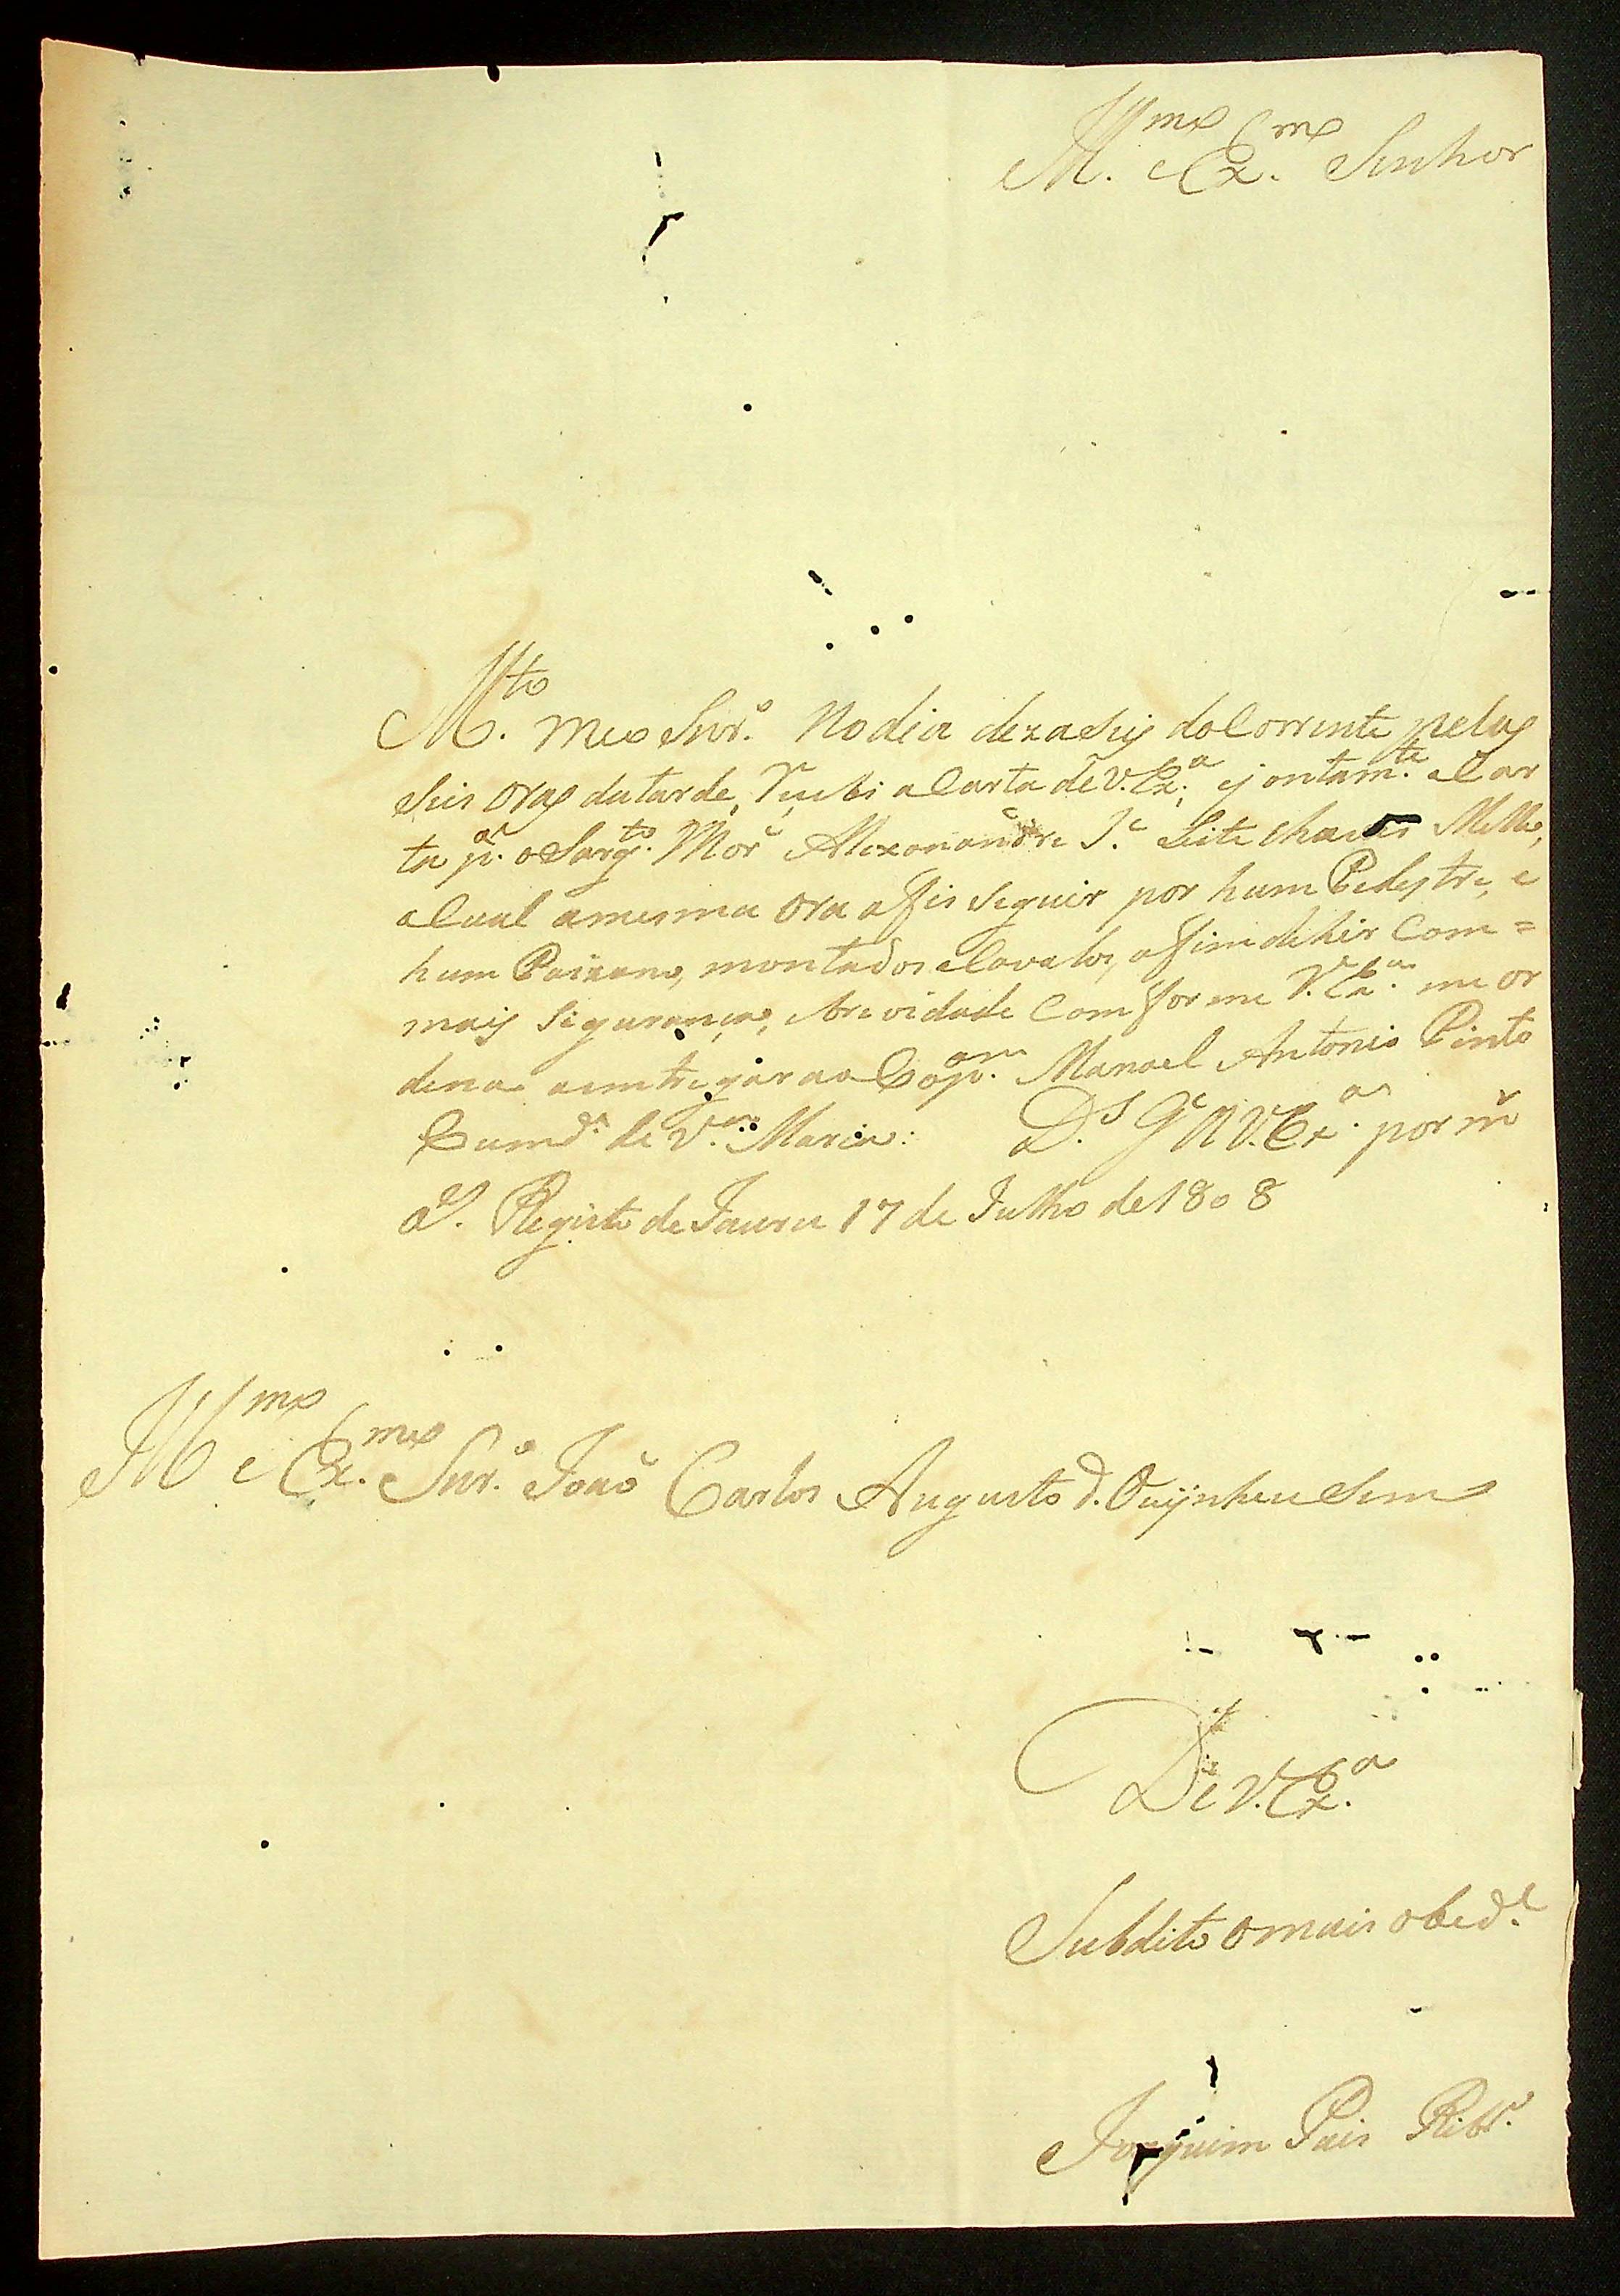 Ill.mo e Ex.mo Senhor
M.to meo Snr.o No dia dezaseis do Corrente pelas
seis oras da tarde, reçebi a Carta de V. Ex.a, ejontam.te a Car
ta p.a o Sarg.to Mór Alexanandre J.e Leite Chaves Mello,
aCual amesma ora afis seguir por hum Pedestre, e
hum Paizano, montados aCavalos, afim dehir Com =
mais siguransa, ebrevidade Comforme V. Ex.a me or
dena aemtregar ao Cap.am Manoel Antonio Pinto
Comd.e de V.a Maria: D.s G.e A V. Ex.a por m.s
a.s Registo de Jauru 17 de Julho de 1808
Ill.mo e Ex.mo Snr.o João Carlos Augusto d. Oeijnheusem
De V. Ex.a
Subdito omais obed.e
Joaquim Pais Rib.o